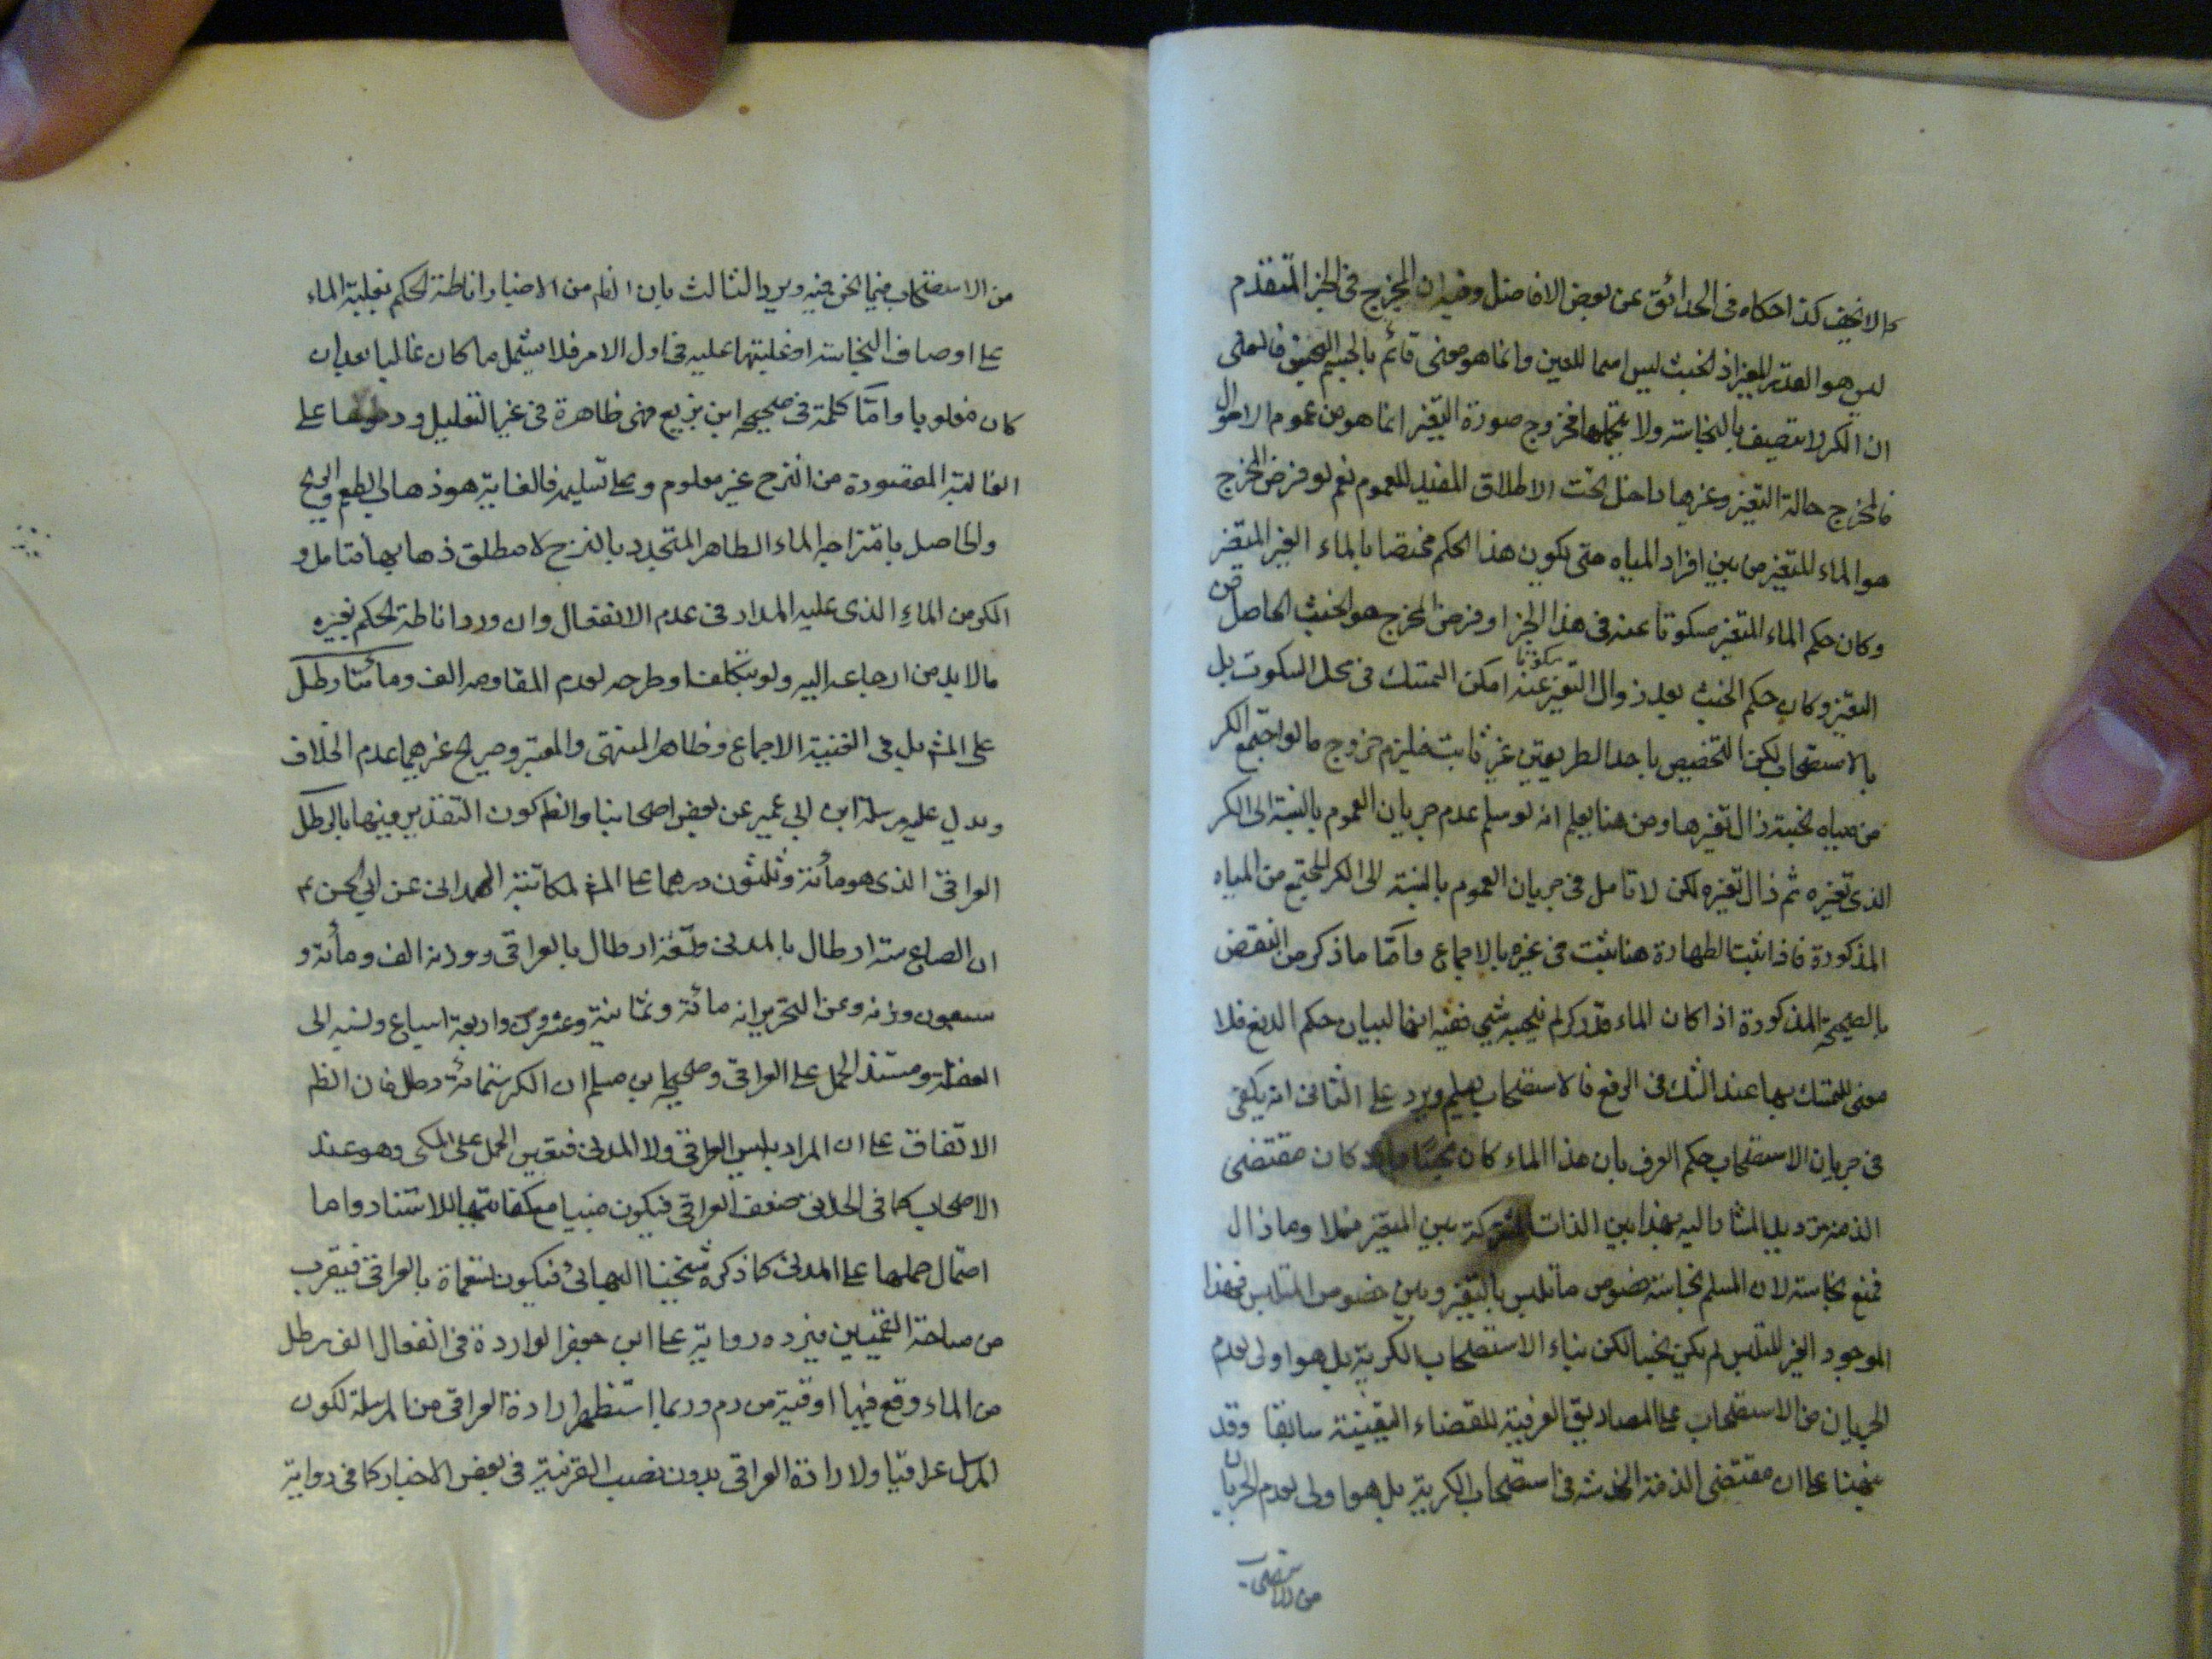 كما لا يخفى كذا حكاه فى الحدائق عن بعض الافاضل وفيه ان المخرج فى الخبر المتقدم
ليس هو الماء المتغير اذ الخبث ليس اسما للعين وانما هو معنى قائم بالجسم فالمعنى
ان الكر لا يتصف بالنجاسة ولا يتحملها فخروج صورة التغير انما هو من عموم الاحوال
فالمخرج حالة التغير وغيرها داخل تحت الاطلاق المفيد للعموم نعم لو فرض المخرج
هو الماء المتغير من بين افراد المياه حتى يكون هذا الحكم مختصا بالماء الغير المتغير
وكان حكم الماء المتغير مسكوتا عنه فى هذا الخبر او فرض المخرج هو الخبث الحاصل من
التغير وكان حكم الخبث بعد زوال التغير عنه مسكوتا امكن التمسك فى محل السكوت بل
بالاستصحاب لكن التخصيص باحد الطريقين غير ثابت فليزم خروج ما لو اجتمع الكر
من مياه نجسة زال تغيرها ومن هنا يعلم انه لو سلم عدم جريان العموم بالنسبة الى الكر
الذى تغيره ثم زال تغيره لكن لا تامل فى جريان العموم بالنسبة الى الكر المجتمع من المياه
المذكورة فاذا ثبت الطهارة هنا يثبت فى غيره بالاجماع واما ما ذكر من النقض
بالصحيحة المذكورة اذا كان الماء قدر كر لم ينجسه شيء ففيه انها لبيان حكم الدفع فلا
معنى للتمسك بها عند الشك فى الرفع فالاستصحاب سليم ويرد على الثانى انه يكفى
فى جريان الاستصحاب حكم العرف بان هذا الماء كان نجسا كان مقتضى
الذمنه ترديد المشار اليه بهذا بين الذات المشتركة بين المتغير مثلا وما زال
فمنع نجاسته لان المسلم نجاسة خصوص ما تلبس بالتغير وبين خصوص المتلبس فهذا
الموجود الغير المتلبس لم يكن نجسا لكن بناء الاستصحاب الكرية بل هو اولى بعدم
الجريان من الاستصحاب على المصاديق العرفية للقضاء اليقينية سابقا وقد
نبهنا على ان مقتضى الدقة الخدشة فى استصحاب الكرية بل هو اولى بعدم الجريان
من الاستصحاب
من الاستصحاب فيما نحن فيه ويرد الثالث بان الظم من الاخبار اناطة الحكم بغلبة الماء
على اوصاف النجاسة او غلبتها عليه فى اول الامر فلا يشمل ما كان غالبا بعد ان
كان مغلوبا واما كلمة فى صحيحه ابن بزيع فهى ظاهرة فى غير التعليل ودخولها على
الغائية المقصودة من النزح غير معلوم وعلى تسليمه فالغاية هو ذهاب الطعم والريح
والحاصل بامتزاجه الماء الطاهر المتجدد بالنزح لا مطلق ذهابهما فتامل و
الكر من الماء الذى عليه المدار فى عدم الانفعال وان ورد اناطة الحكم بغيره
مما لا بد من ارجاعه اليه ولو بتكلف او طرحه لعدم المقاومه الف ومائتا رطل
على المش بل فى الغنية الاجماع وظاهر المنتهى والمعتبر وصريح غيرهما عدم الخلاف
ويدل عليه مرسلة ابن ابى عمير عن بعض اصحابنا والظم كون التقدير فيها بالرطل
العراقى الذى هو مائة وثلثون درهما على المش لمكاتبة الهمدانى عن ابى الحسن ع
ان الصاع ستة ارطال بالمدنى وتسعة ارطال بالعراقى ووزنه الف ومائة و
سبعون وزنه وعن التحرير انه مائة وثمانية وعشرون واربعة اسباع ونسبه الى
الغفلة ومستند الحمل على العراقى وصحيحة ابن مسلم ان الكر ستمائة رطل فان الظم
الاتفاق على ان المراد ليس العراقى ولا المدنى فتعين الحمل على المكى وهو عند
الاصحاب كما فى الحدائق ضعف العراقى فيكون مبينا مع كفايتها للاستناد واما
احتمال حملها على المدنى كما ذكره شيخنا البهائى فيكون تسعماة بالعراقى فيقرب
من مساحة القميين فيرده رواية على ابن جعفر الواردة فى انفعال الف رطل
من الماء وقع فيها اوقية من دم وربما استظهر ارادة العراقى من المرسلة لكون
المرسل عراقيا ولارادة العراقى بدون نصب القرنية فى بعض الاخبار كما فى رواية